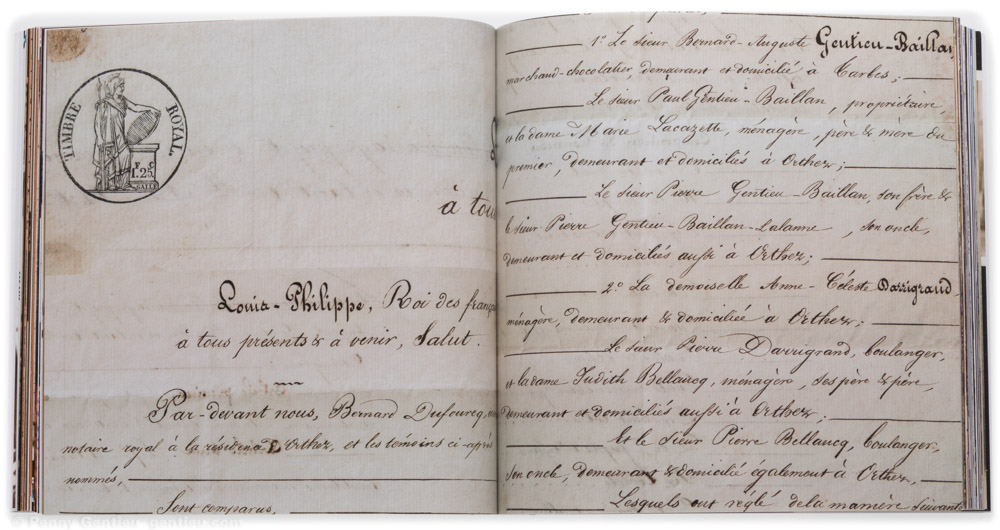 TIMBRE ROYAL
F. C.
1.25
à tou
Louis-Philippe, Roi des franç
à tous présents & à venir, Salut.
Par-devant nous, Bernard Dufourcq,
notaire royal à la résidence d'Orthez, et les témoins ci-après
nommés,
Sont comparus,
1º Le sieur Bernard-Auguste Gentieu-Baillan
marchand-chocolatier demeurant et domicilié à Tarbes;
Le sieur Paul Gentieu-Baillan, propriétaire,
et la dame Marie Lacazette, ménagère, père & mère du
premier, demeurant et domiciliés à Orthez;
Le sieur Pierre Gentieu-Baillan, son frère &
le sieur Pierre Gentieu-Baillan-Lalanne, son oncle,
demeurant et domiciliés aussi à Orthez;
2º La demoiselle Anne-Céleste Darrigrand,
ménagère, demeurant & domiciliée à Orthez;
Le sieur Pierre Darrigrand, boulanger,
et la dame Judith Bellaucq, ménagère, ses père & père,
demeurant et domiciliés aussi à Orthez;
Et le sieur Pierre Bellaucq, boulanger,
son oncle, demeurant & domicilié également à Orthez,
Lesquels ont réglé de la manière suivante
© Penny Gentieu gentieu.com